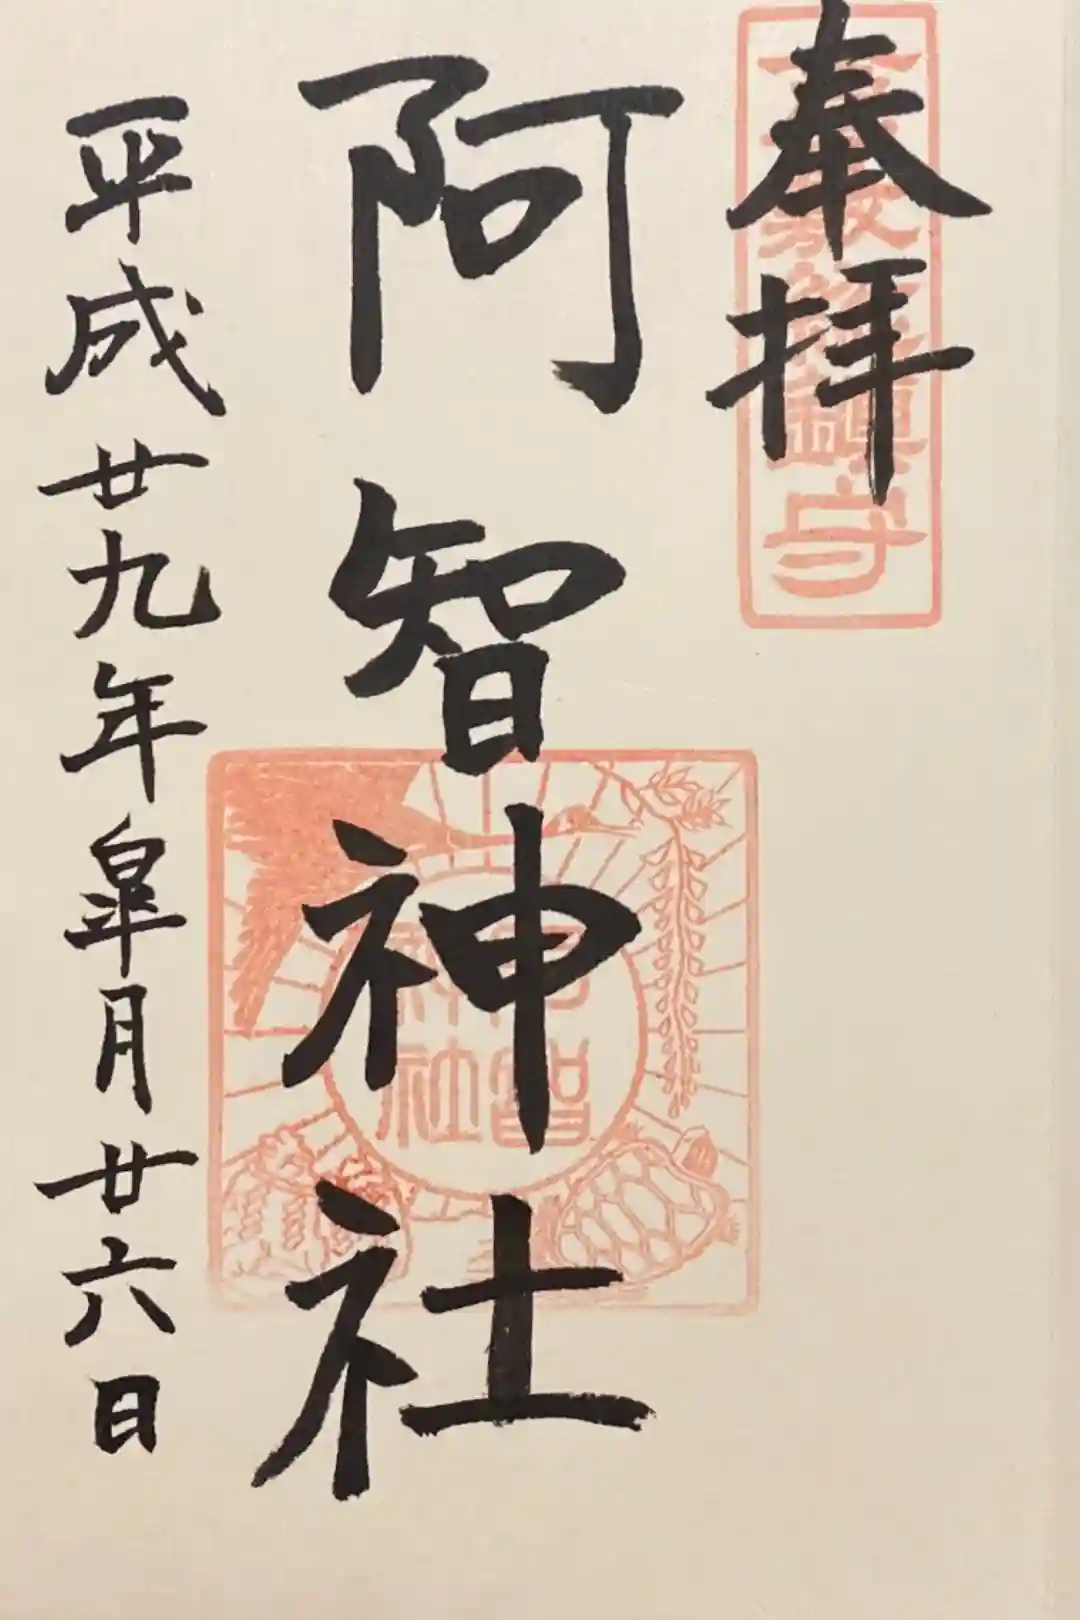 奉拝
阿智神社
平成廿九年皐月廿六日
阿智
神社